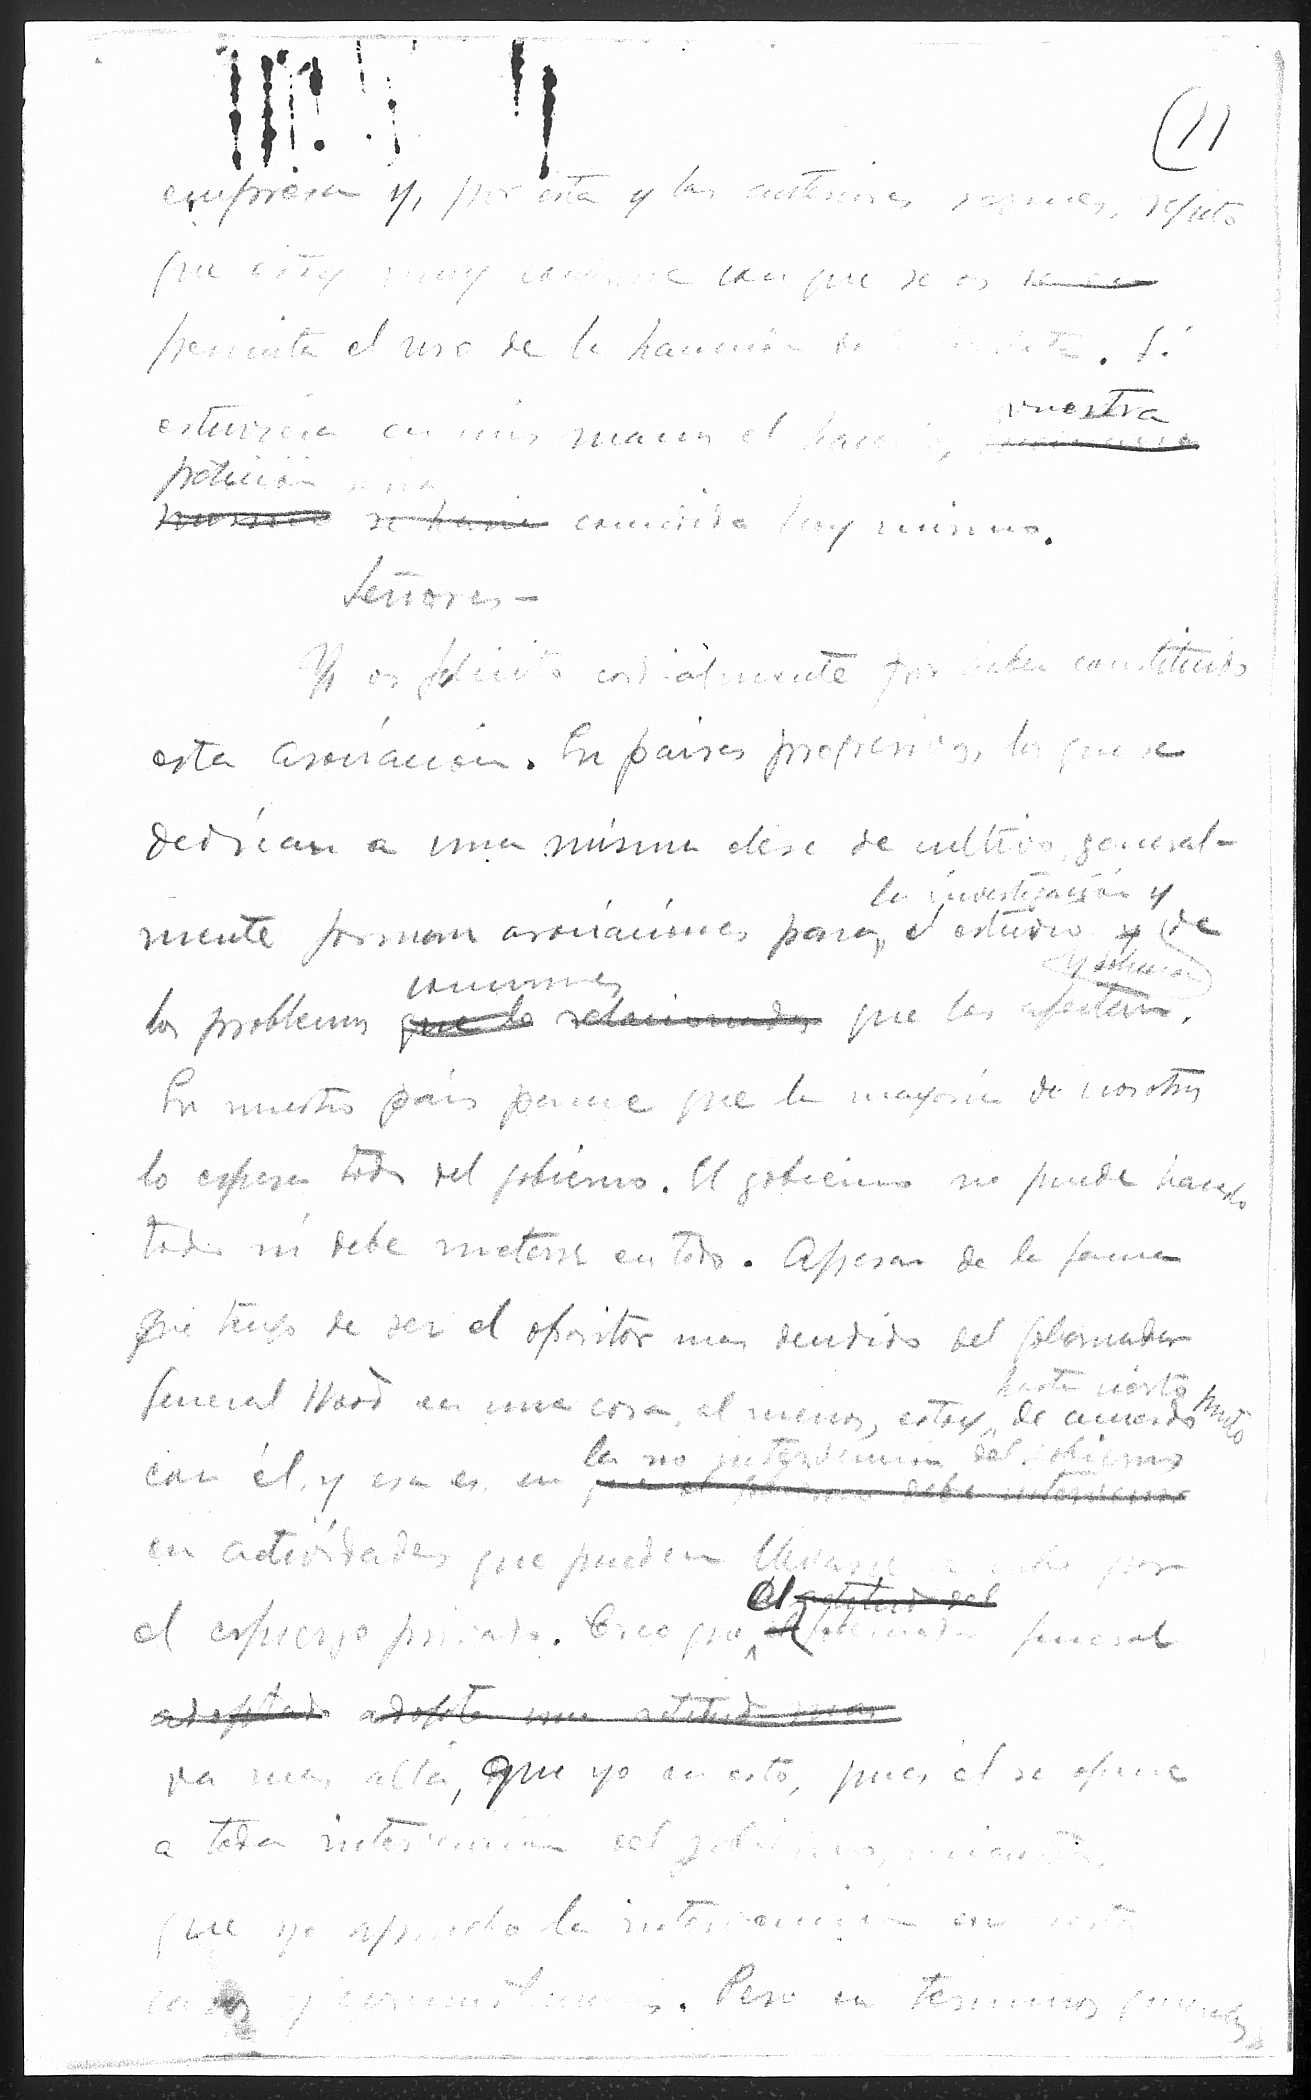 (11
empresa y, por esta y las anteriores razones, repito
que estoy muy conforme con que se os
permita el uso de la hacienda de. Si
estuviera en mis manos el hacerlo, vuestra
petición sería
se haria concedida hoy mismo.
Señores—
Yo os felicito cordialmente por haber constituido
esta asociación. En paises progresivos, los que se
dedican a una misma clase de cultivo, general-
la investigación y
mente forman asociaciones para el estudio y de
y solución
comunes
los problemas que lo relacionados que les afectan.
En nuestro país parece que la mayoría de nosotros
lo espera todo del gobierno. El gobierno no puede hacerlo
todo ni debe meterse en todo. Apesar de la fama
que tengo de ser el opositor mas decidido del Gobernador
hasta cierto punto
General Wood en una cosa, al menos, estoy de acuerdo
la no intervención del gobierno
con él, y esa es, en que el gobierno debe intervenir
en actividades que pueden llevarse a cabo por
el actitud del
el esfuerzo privado. Creo que el Gobernador General
adoptado adopta una actitud mas
va mas allá, que yo en esto, pues él se opone
a toda intervención del gobierno, mientras
que yo apruebo la intervención en
casos y circunstancias. Pero en terminos generales,